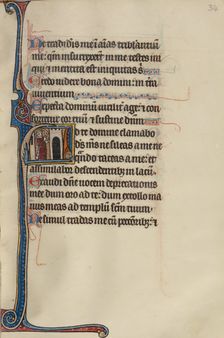 34
Ne tradideris me in animas tribulantium
me: qm insurrexerunt in me testes ini
qui & mentita est iniquitas s
Credo videre bona domini: in tra
uiuentium
Expecta dominum uiriliter age: & con
fortetur cor tuum & sustine dnm
Ad te domine clamabo
ds ms ne sileas a me ne
quando taceas a me: et
assimilabor descendentibus in lacu
Exaudi dne uocem deprecationis
mee dum oro ad te: dum extollo ma
nus meas ad templum scm tuum
Ne simul tradas me cum peccatoribus: &